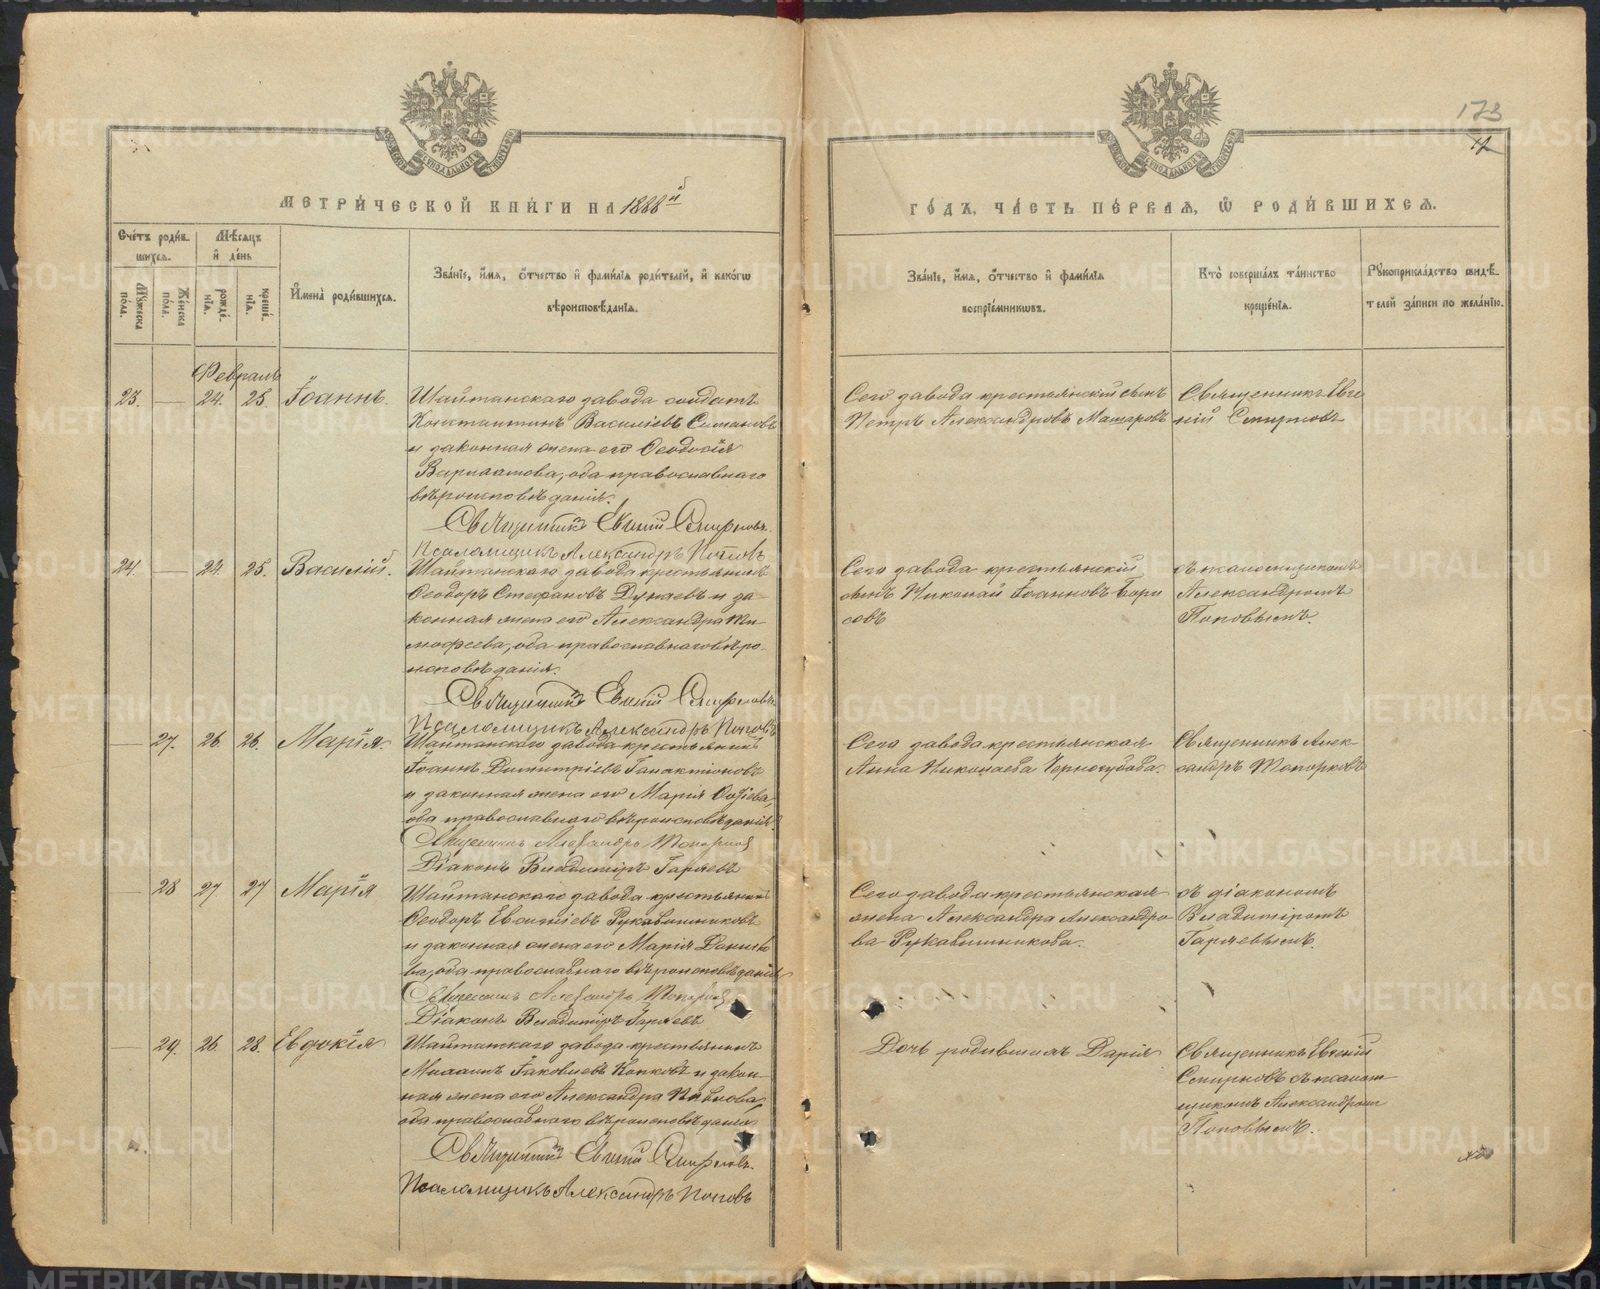 173
12
МЕТРИ́ЧЕСКОЙ КНИ́ГИ НА 1888й
ГО́ДЪ, ЧА́СТЬ ПЕ́РВАЯ, Ѿ РОДИ́ВШИХСЯ.
Сче́тъ роди́в-
шихся.
Мѣ́сяцъ
и҆ де́нь
Му́жеска по́ла.
Же́нска по́ла.
рожде́нїя.
креще́нїя.
И҆мена̀ роди́вшихся.
Зва́нїе, и҆́мя, ѻ҆́тчество и҆ фами́лїя роди́телей, и҆ како́гѡ
вѣроисповѣ́данїя.
Зва́нїе, и҆́мя, ѻ҆́тчество и҆ фами́лїя
воспрїе́мникѡвъ.
Кто̀ соверша́лъ та́инство
креще́нїя.
Рꙋкоприкла́дство свидѣ́-
телей за́писи по жела́нїю.
Февраль
23. — 24. 25. Іоаннъ.
Шайтанскаго завода солдатъ
Константинъ Василіевъ Симановъ
и законная жена его Ѳеодосія
Варлаамова, оба православнаго
вѣроисповѣданія.
Священникъ Евгеній Смирновъ.
Псаломщикъ Александръ Поповъ
Сего завода крестьянскій сынъ
Петръ Александровъ Машаровъ
Священникъ Евге
ній Смирновъ
24. — 24. 25. Василій.
Шайтанскаго завода крестьянинъ
Ѳеодоръ Стефановъ Дунаевъ и за
конная жена его Александра Ти-
моѳеева, оба православнаго вѣро-
исповѣданія.
Священникъ Евгеній Смирновъ
Псаломщикъ Александръ Поповъ
Сего завода крестьянскій
сынъ Николай Іоанновъ Бори
совъ
съ псаломщикомъ
Александромъ
Поповымъ.
— 27. 26. 26. Марія.
Шайтанскаго завода крестьянинъ
Іоаннъ Димитріевъ Галактіоновъ
и законная жена его Марія
оба православнаго вѣроисповѣданія.
Священникъ Александръ Топорковъ
Діаконъ Владиміръ Гаряевъ
Сего завода крестьянская
Анна Николаева Черногубова.
Священникъ Алек-
сандръ Топорковъ
— 28 27 27 Марія
Шайтанскаго завода крестьянинъ
Ѳеодоръ Евсигніевъ Рукавишниковъ
и законная жена его Марія Данило
ва, оба православнаго вѣроисповѣданія
Священникъ Александръ Топорковъ
Діаконъ Владиміръ Гаряевъ
Сего завода крестьянская
жена Александра Александро-
ва Рукавишникова.
съ діакономъ
Владиміромъ
Гаряевымъ.
— 29. 26. 28. Евдокія
Шайтанскаго завода крестьянинъ
Іаковлевъ Копковъ и закон-
ная жена его Александра Павлова,
оба православнаго вѣроисповѣданія
Священникъ Евгеній Смирновъ.
Псаломщикъ Александръ Поповъ
Дочь родившихъ Дарія
Священникъ Евгеній
Смирновъ съ псалом-
щикомъ Александромъ
Поповымъ.